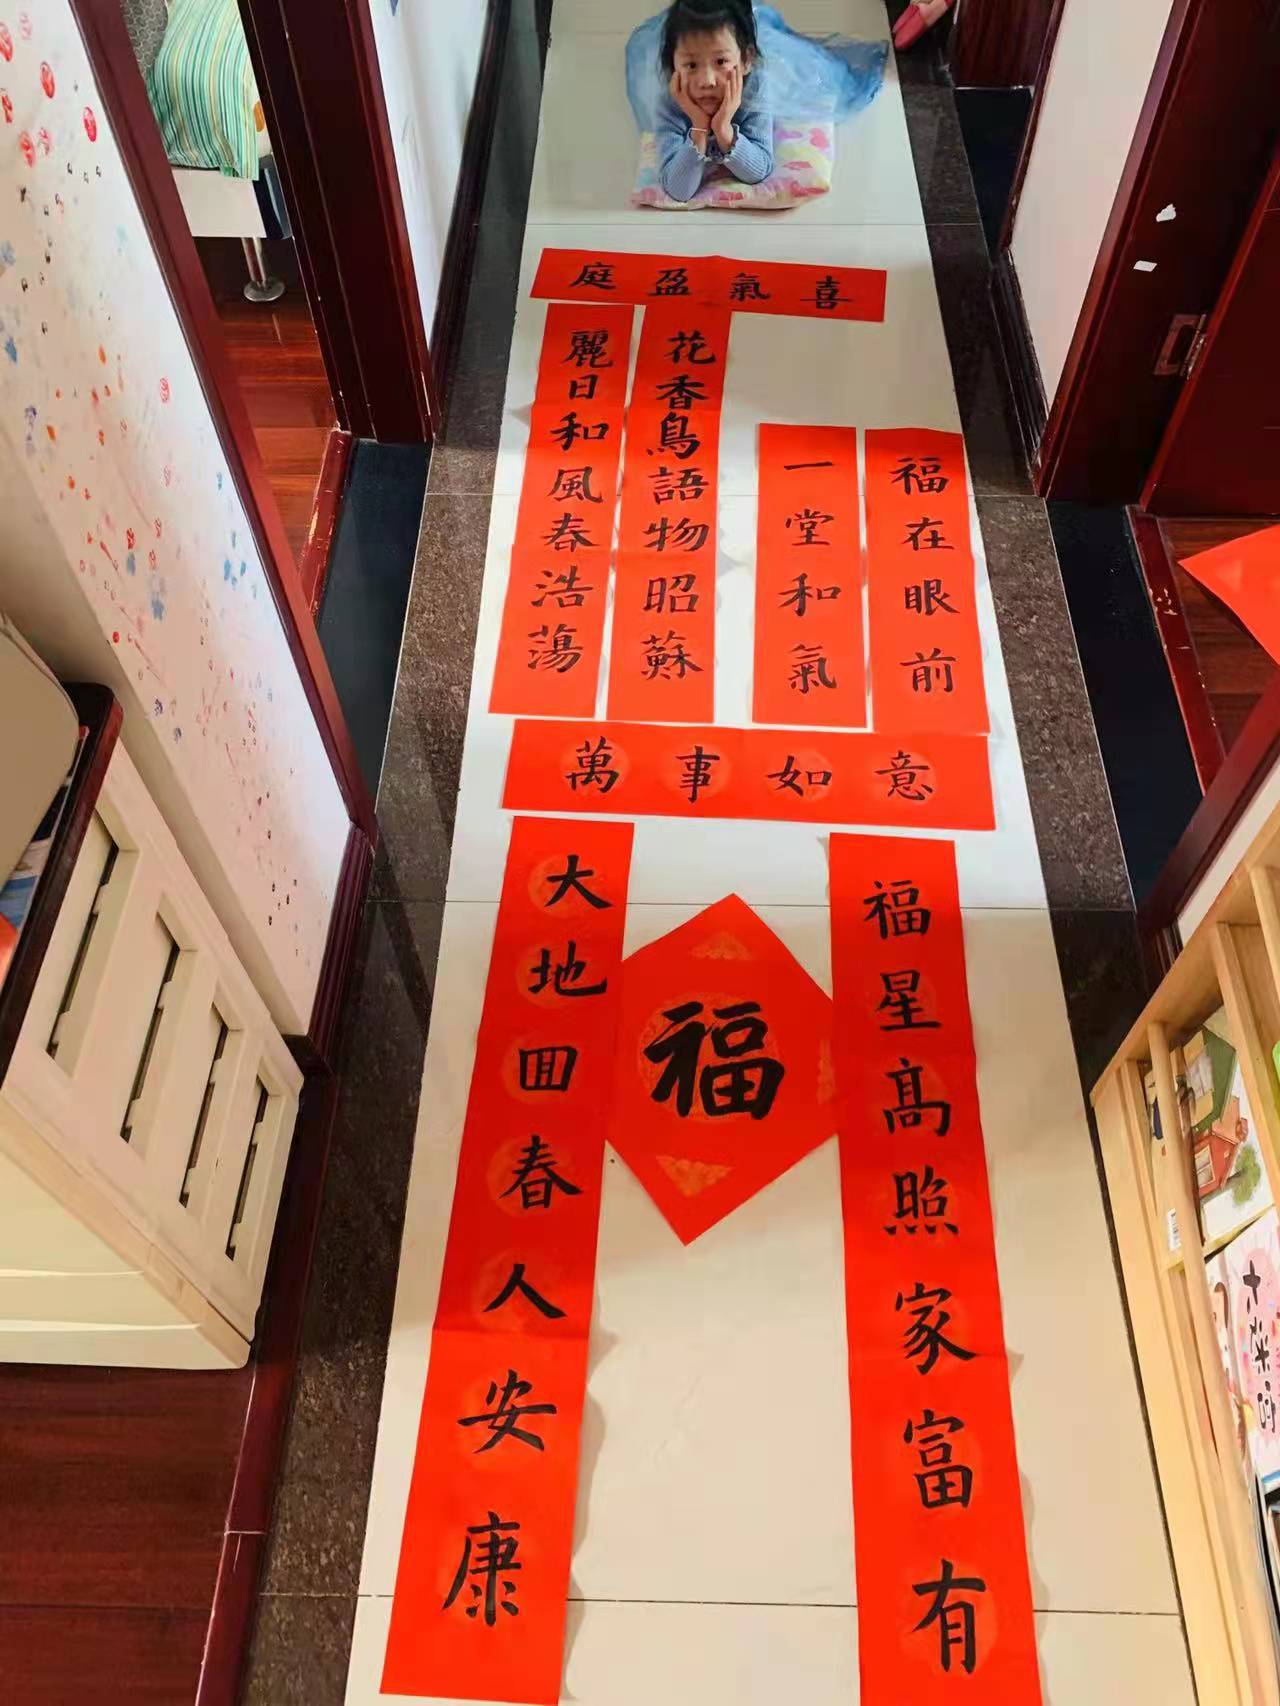 喜氣盈庭
麗日和風春浩蕩
花香鳥語物昭蘇
一堂和氣
福在眼前
萬事如意
大地回春人安康
福
福星高照家富有